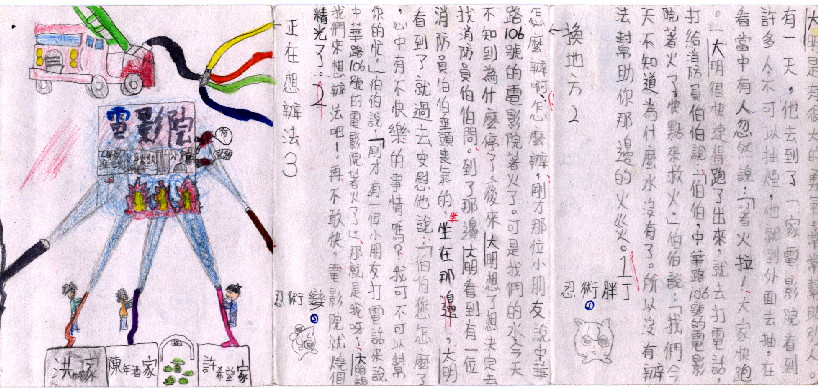 大明是有很大的勇氣常常幫助別人。
有一天，他去到了一家電影院看到
許多人不可以抽煙，他就到外面去抽，在
看當中有人忽然說：「着火拉！」大家快跑
。」大明很快速得跑了出來，就去打電話，
打給消防員伯伯說：「伯伯，中華路106號的電影
院著火了，快點來救火。」伯伯說：「我們今
天不知道為什麼水沒有了。所以沒有辦
法幫助你那邊的火災。」1
忍術胖丁
換地方2
怎麼辦啊怎麼辦，剛才那位小朋友說中華
路106號的電影院著火了。可是我們的水今天
不知到為什麼停了。後來大明想了想決定去
找消防員伯伯問。到了那邊大明看到有一位
消防員伯伯垂頭喪氣的坐在那邊，大明
看到了就過去安慰他說：「伯伯您怎麼了
，心中有不快樂的事情嗎？我可不可以幫
你的忙。」伯伯說：「剛才有一個小朋友打電話來說
中華路106號的電影院著火了」「那就是我呀」大明說
我們來想辦法吧！再不敢快，電影院就燒個
精光了…2
忍術
正在想辦法3
電影院
洪 家
陳年酒家
許希望家